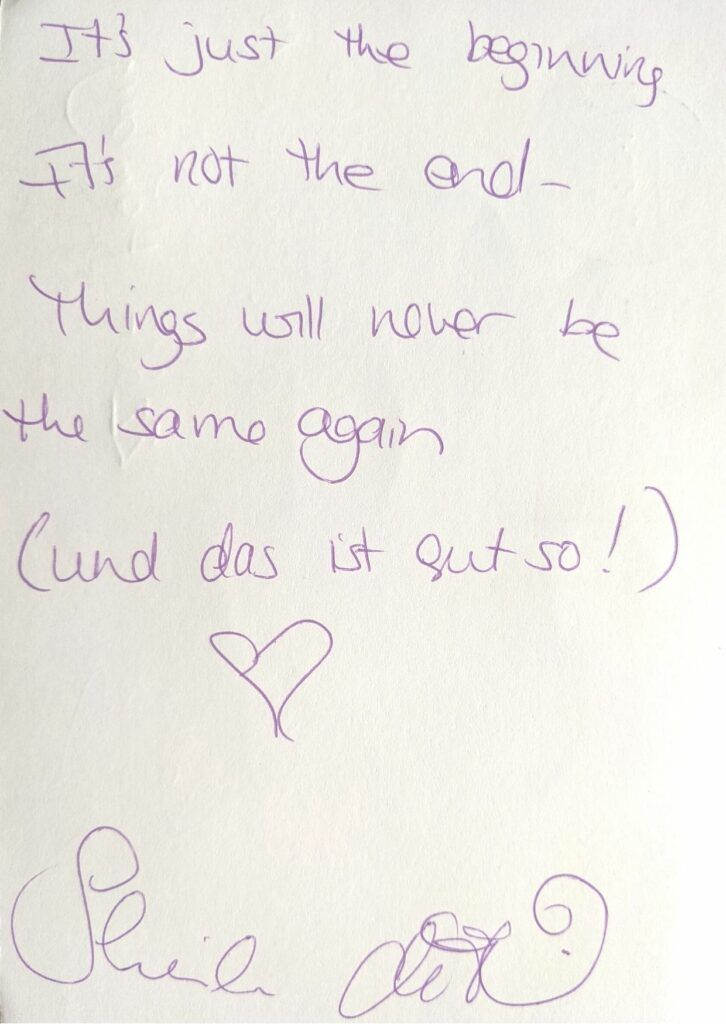 It's just the beginning
It's not the end-
Things will never be
the same again
(und das ist gut so!)